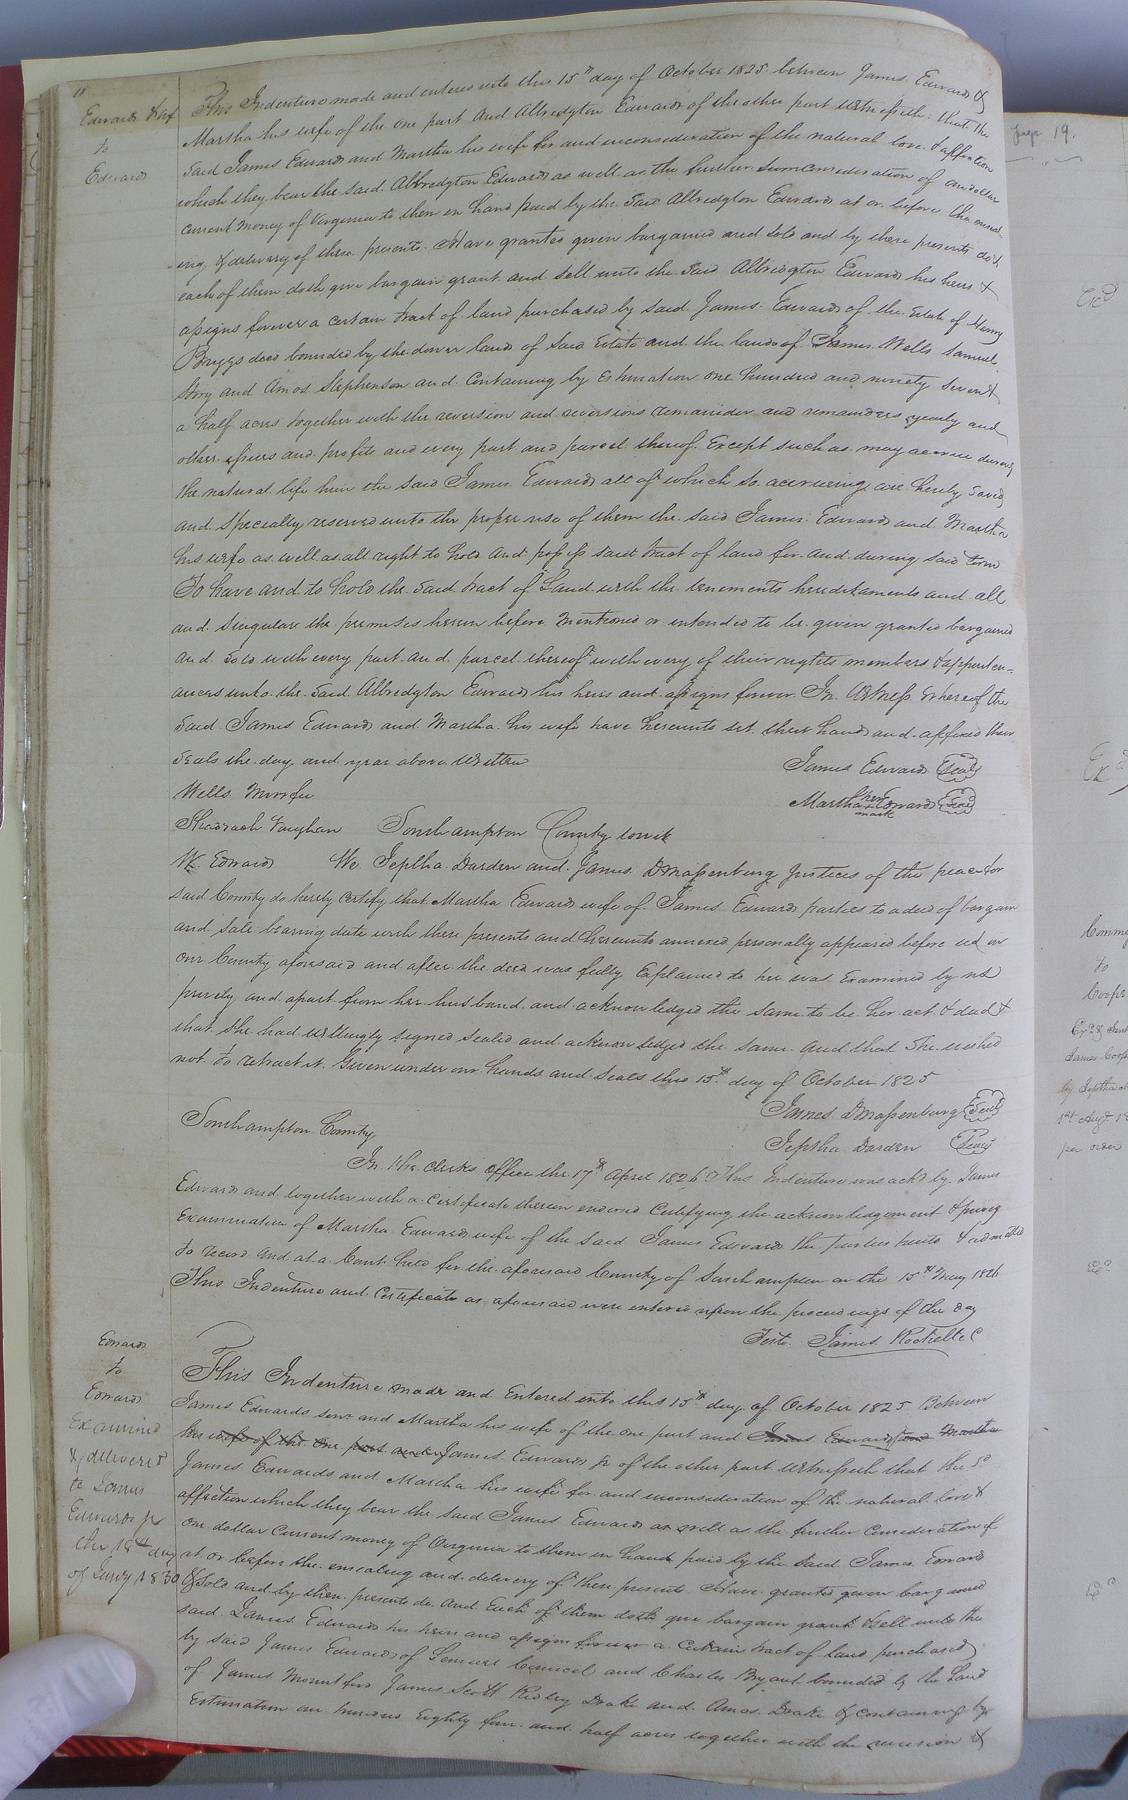 18
Edwards & wf
to
Edwards
This Indenture made and entered into this 15th day of October 1825 between James Edwards &
Martha his wife of the one part and Albridgton Edwards of the other part Witnesseth: that the
Said James Edwards and Martha his wife for and inconsideration of the natural love & affection
which they bear the said Albridgton Edwards as well as the further consideration of one dollar
current money of Virginia to them in hand paid by the Said Albridgton Edwards at or before the enseal-
-ing & delivery of these presents Have granted given bargained and sold and by these presents do &
each of them doth give bargain grant and sell unto the Said Albridgton Edwards his heirs &
assigns forever a certain tract of land purchased by said James Edwards of the Estate of Henry
Briggs decd bounded by the dower land of said Estate and the lands of James Wells Samuel
Story and Amos Stephenson and Containing by Estimation one hundred and ninety seven &
a half acres together with the reversion and reversions remainder and remainders yearly and
other issues and profits and every part and parcel thereof Except such as may accrue during
the natural life him the said James Edwards all of which so accrueing are hereby Saved
and Specially reserved unto the proper use of them the said James Edwards and Martha
his wife as well as all right to hold and possess said tract of land for and during said term
To have and to hold the Said tract of Land with the tenements hereditaments and all
and Singular the premises herein before mentioned or intended to be given granted bargained
and Sold with every part and parcel thereof with every of their rights members & appurten-
ances unto the Said Albridgton Edwards his heirs and assigns forever In Witness Whereof the
Said James Edwards and Martha his wife have hereunto set their hands and affixed their
Seals the day and year above Written
James Edwards Seal
Wells
Martha her Edwards Seal
mark
Shadrach Vaughan Southampton County towit
W. Edwards We Jeptha Darden and James D Massenburg Justices of the peace for
said County do hereby Certify that Martha Edwards wife of James Edwards parties to a deed of bargain
and Sale bearing date with these presents and hereunto annexed personally appeared before us in
our County aforesaid and after the deed was fully Explained to her was Examined by us
privily and apart from her husband and acknowledged the same to be her act & deed &
that She had willingly signed sealed and acknowledged the same and that She wished
not to retract it Given under our hands and Seals this 15th day of October 1825
James D Massenburg Seal
Southampton County
Jeptha Darden Seal
In the Clerks office the 17th April 1826 This Indenture was ackd by James
Edwards and together with a Certificate thereon endorsed Certifying the acknowledgement & privy
Examination of Martha Edwards wife of the said James Edwards the parties hereto & admitted
to record and at a Court held for the aforesaid County of Southampton on the 15th May 1826
This Indenture and Certificate as aforesaid were entered upon the proceedings of the day
Teste James Rochelle C
Edwards
to
Edwards
Examined
& delivered
to James
Edwards jr
the day
of 1830
This Indenture made and Entered into this 15th day of October 1825 Between
James Edwards senr and Martha his wife of the one part and James Edwards and Martha
his wife of the one part and James Edwards jr of the other part Witnesseth that the Sd
James Edwards and Martha his wife for and inconsideration of the natural love &
affection which they bear the said James Edwards as well as the further Consideration of
one dollar Current money of Virginia to them in hand paid by the Said James Edwards
at or before the ensealing and delivery of these presents Have granted given bargained
& Sold and by these presents do and Each of them doth give bargain grant & sell unto the
said James Edwards his heirs and assigns forever a Certain tract of land purchased
by said James Edwards of Council and Charles Bryant bounded by the Land
of James James Scott Ridley Drake and Amos Drake & containing by
Estimation one hundred Eighty four and half acres together with the reversion &
Page 19.
Exd
to
Cooper
James
per order